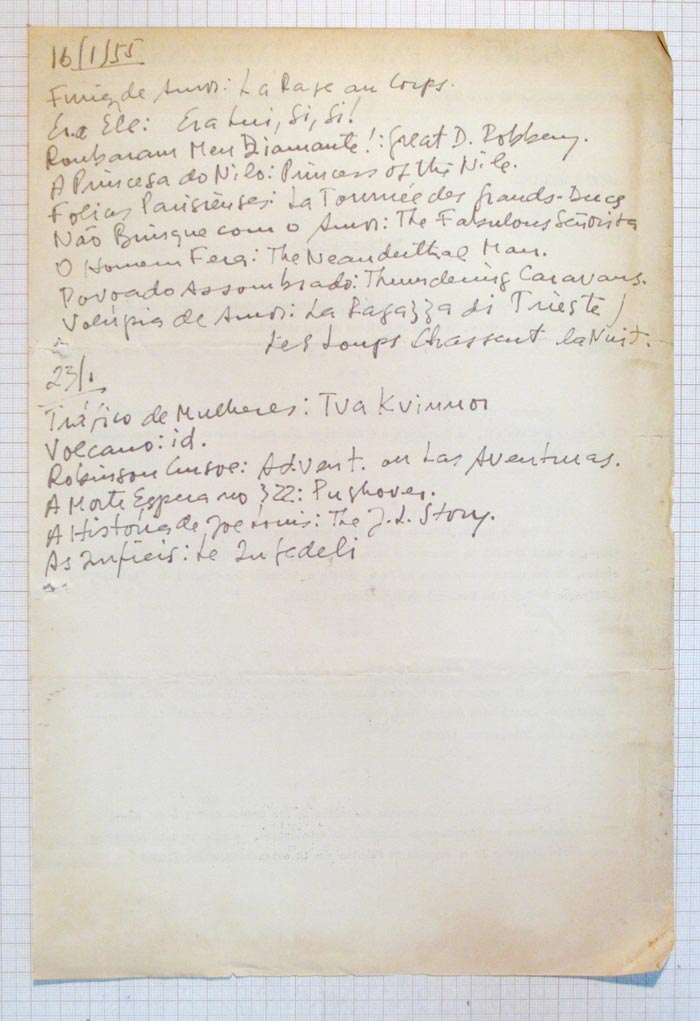 16/1/55
Fúria de Amor: La Rage au Corps.
Era Ele: Era Lui, Si, Si!
Roubaram Meu Diamante!: Great D. Robbery.
A Princesa do Nilo: Princess of the Nile.
Folias Parisienses: La Tournée des Grands-Ducs
Não Brinque com o Amor: The Fabulous Señorita
O Homem Fera: The Neanderthal Man.
Povoado Assombrado: Thundering Caravans.
Volúpia de Amor: La Ragazza di Trieste /
Les Loups Chassent la Nuit.
23/1
Tráfico de Mulheres: Tva Kvinnor
Volcano: id.
Robinson Crusoe: Advent. ou Las Aventuras.
A Morte Espera no 322: Pushover.
A História de Joe Louis: The J.L. Story.
As Infiéis: Le Infedeli